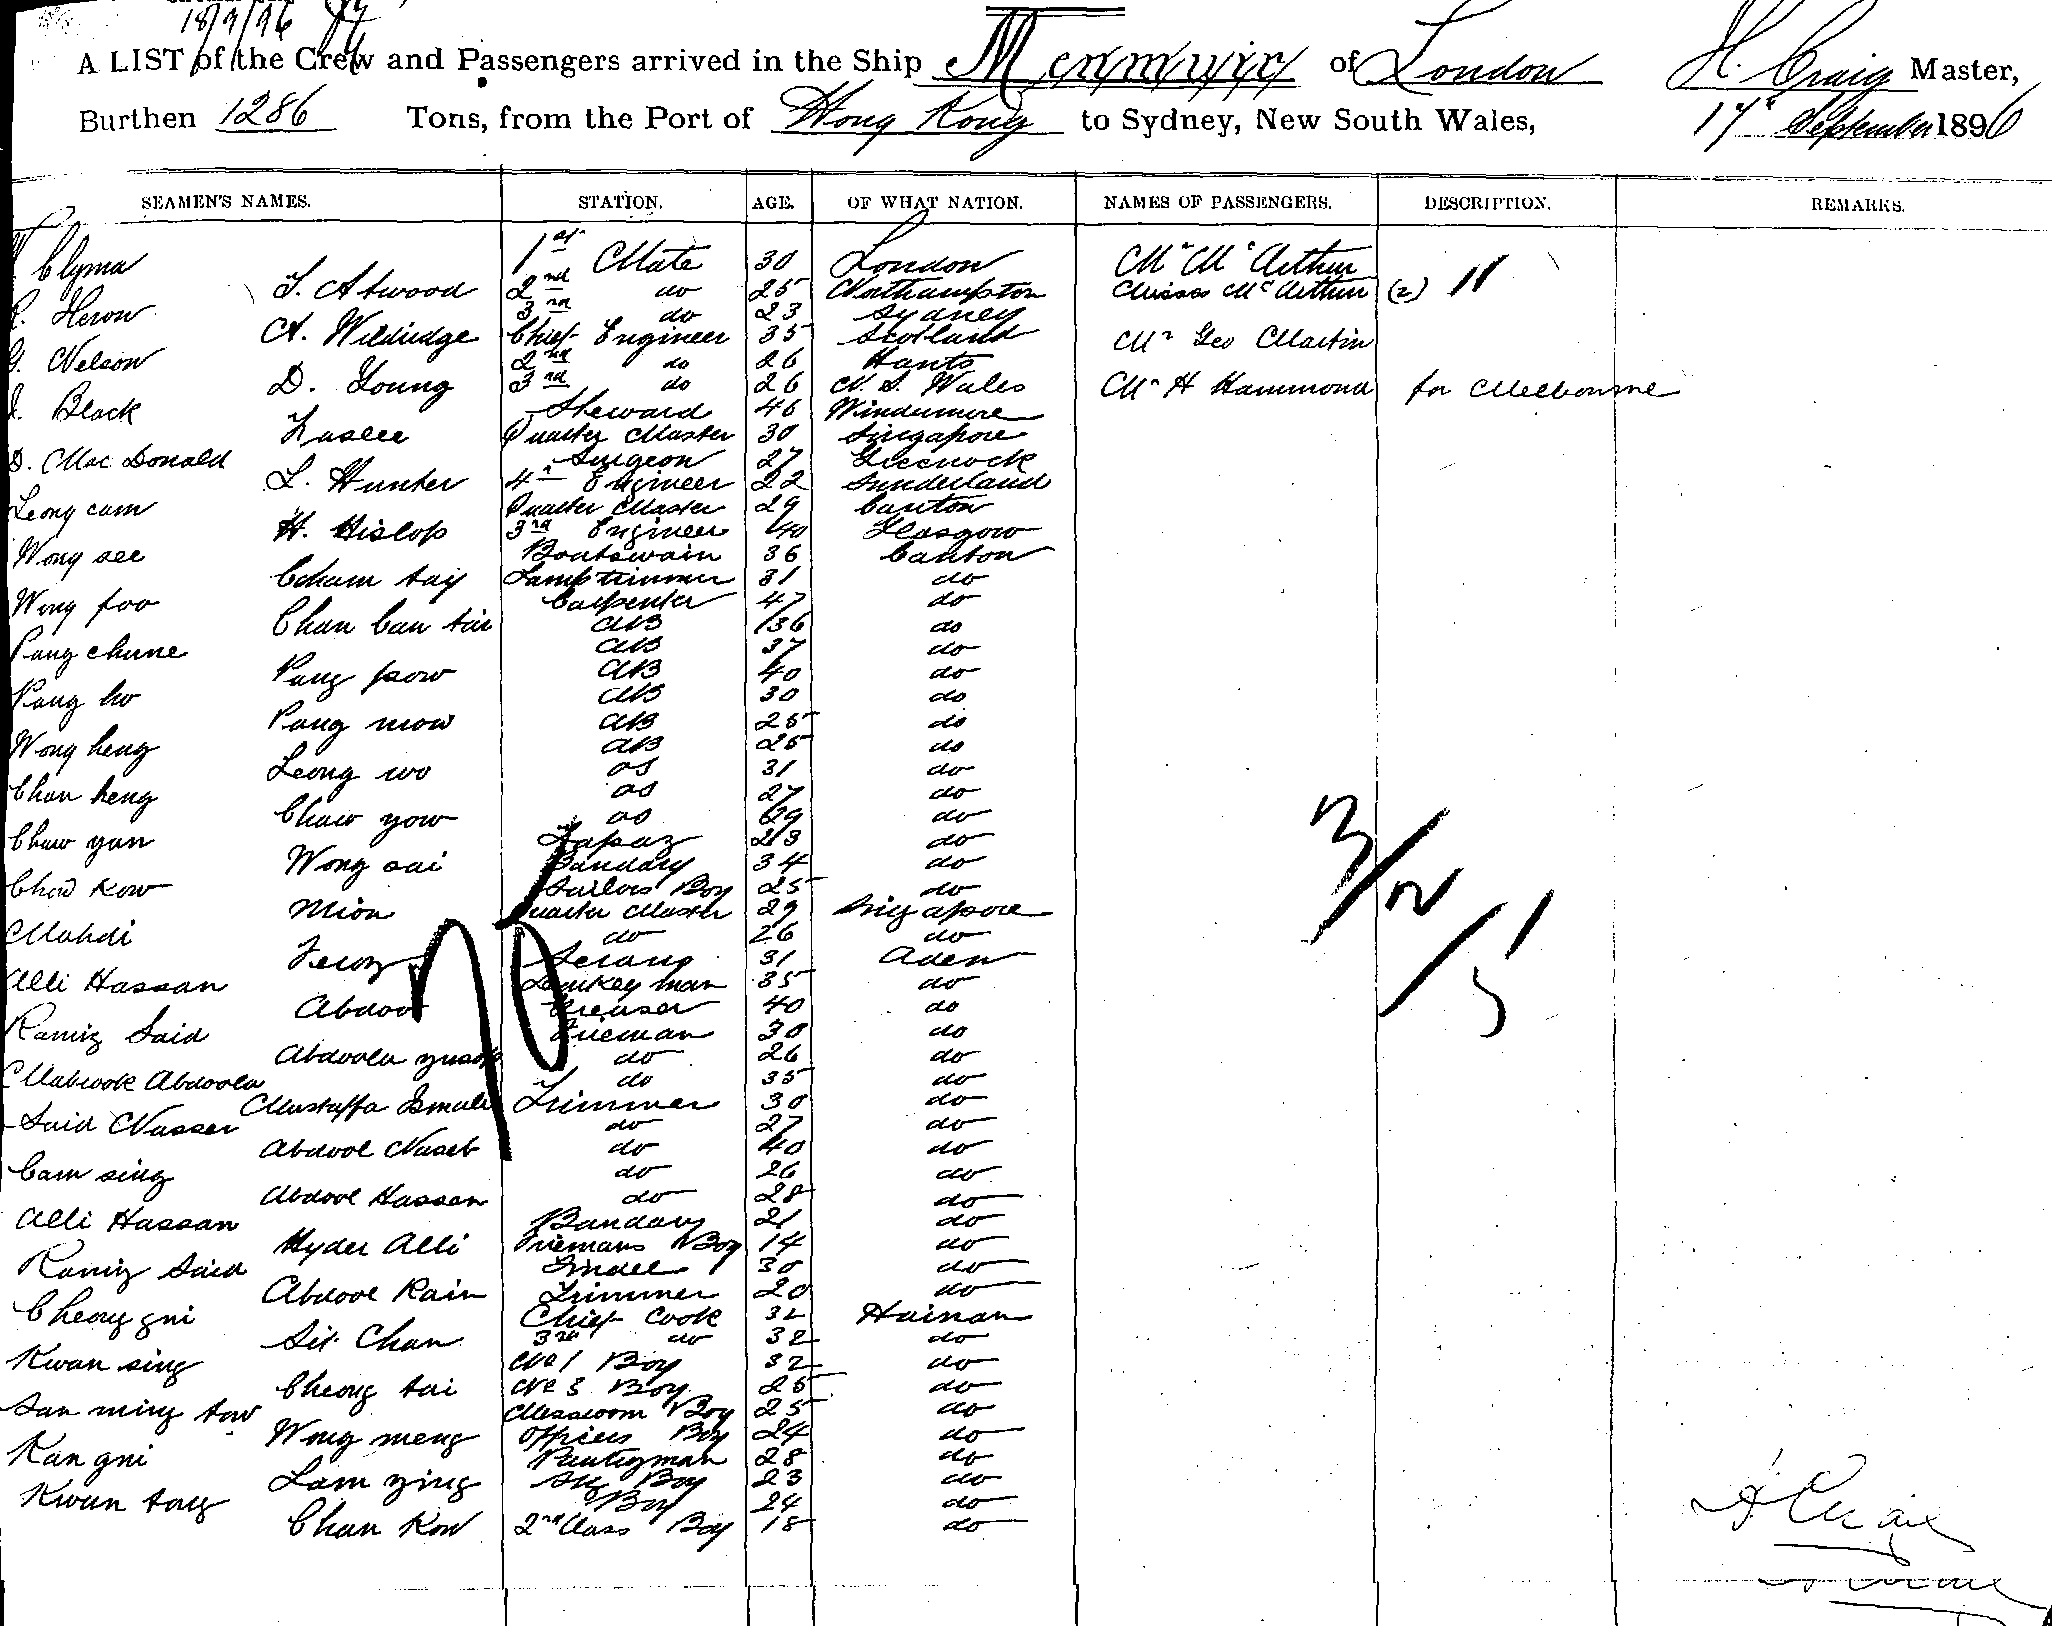 18/9/96
A LIST of the Crew and Passengers arrived in the Ship Menmuir of London H. Craig Master,
Burthen 1286 Tons, from the Port of Hong Kong to Sydney, New South Wales, 17th September 1896
SEAMEN'S NAMES. STATION. AGE. OF WHAT NATION. NAMES OF PASSENGERS. DESCRIPTION. REMARKS.
Clyma 1st Mate 30 London Mr McArthur
T. Atwood 2nd do 25 Northampton Misses McArthur (2) 11
R. Heron 3rd do 23 Sydney
A. Wildridge Chief Engineer 35 Scotland Mr Geo Martin
G. Nelson 2nd do 26 Hants
D. Young 3rd do 26 N. S. Wales Mr H Hammond for Melbourne
J. Black Steward 46 Windermere
Quarter Master 30 Singapore
D. Mac Donald Surgeon 27 Greenock
L. Hunter 4th Engineer 22 Sunderland
Leong cum Quarter Master 29 Canton
H. Hislop 3rd Engineer 40 Glasgow
Wong see Boatswain 36 Canton
Cham tay Lamptrimmer 31 do
Wong foo Carpenter 47 do
Chan Can tai AB 36 do
Pang chune AB 37 do
Pang pow AB 40 do
Pang ho AB 30 do
Pang mow AB 25 do
Wong heng AB 25 do
Leong wo OS 31 do
Chan heng OS 27 do
Chaw yow OS 29 do
Chaw yan 23 do
Wong sai Bandary 34 do
Chow Kow Sailors Boy 25 do
Mion Quarter Master 29 Singapore
Mahdi do 26 do
Feroz Serang 31 Aden
Alli Hassan Donkeyman 35 do
Abdool Greaser 40 do
Ramiz Said Fireman 30 do
Abdoola Yusop do 26 do
Mabrook Abdoola do 35 do
Mustaffa Ismale Trimmer 30 do
Said Nasser do 27 do
Abdool Naseb do 40 do
Cam sing do 26 do
Abdool Hassan do 28 do
Alli Hassan Bandary 21 do
Hyder Alli Firemans Boy 14 do
Ramiz Said Tindel 30 do
Abdool Rain Trimmer 20 do
Cheong gni Chief Cook 32 Hainan
Sit Chan 3rd do 32 do
Kwan sing No 1 Boy 32 do
Cheong tai No 3 Boy 25 do
San ming tow Messroom Boy 25 do
Wong meng Officers Boy 24 do
Kan gni Pantryman 28 do
Lam ying Boy 23 do
Kwan tang Boy 24 do
Chan Kow 2nd Class Boy 18 do
3/2/5
H. Craig